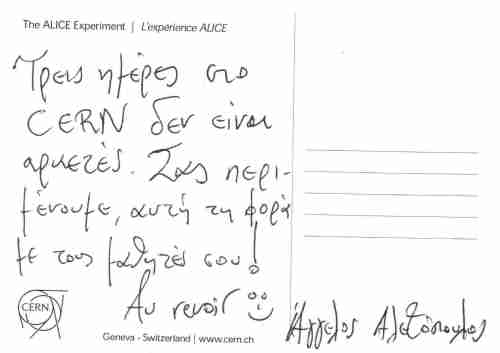 The ALICE Experiment | L'expérience ALICE
Τρεις ημέρες στο
CERN δεν είναι
αρκετές. Σας περι-
μένουμε, αυτή τη φορά
με τους μαθητές σου!
Au revoir
CERN
Άγγελος Αλεξόπουλος
Geneva - Switzerland | www.cern.ch